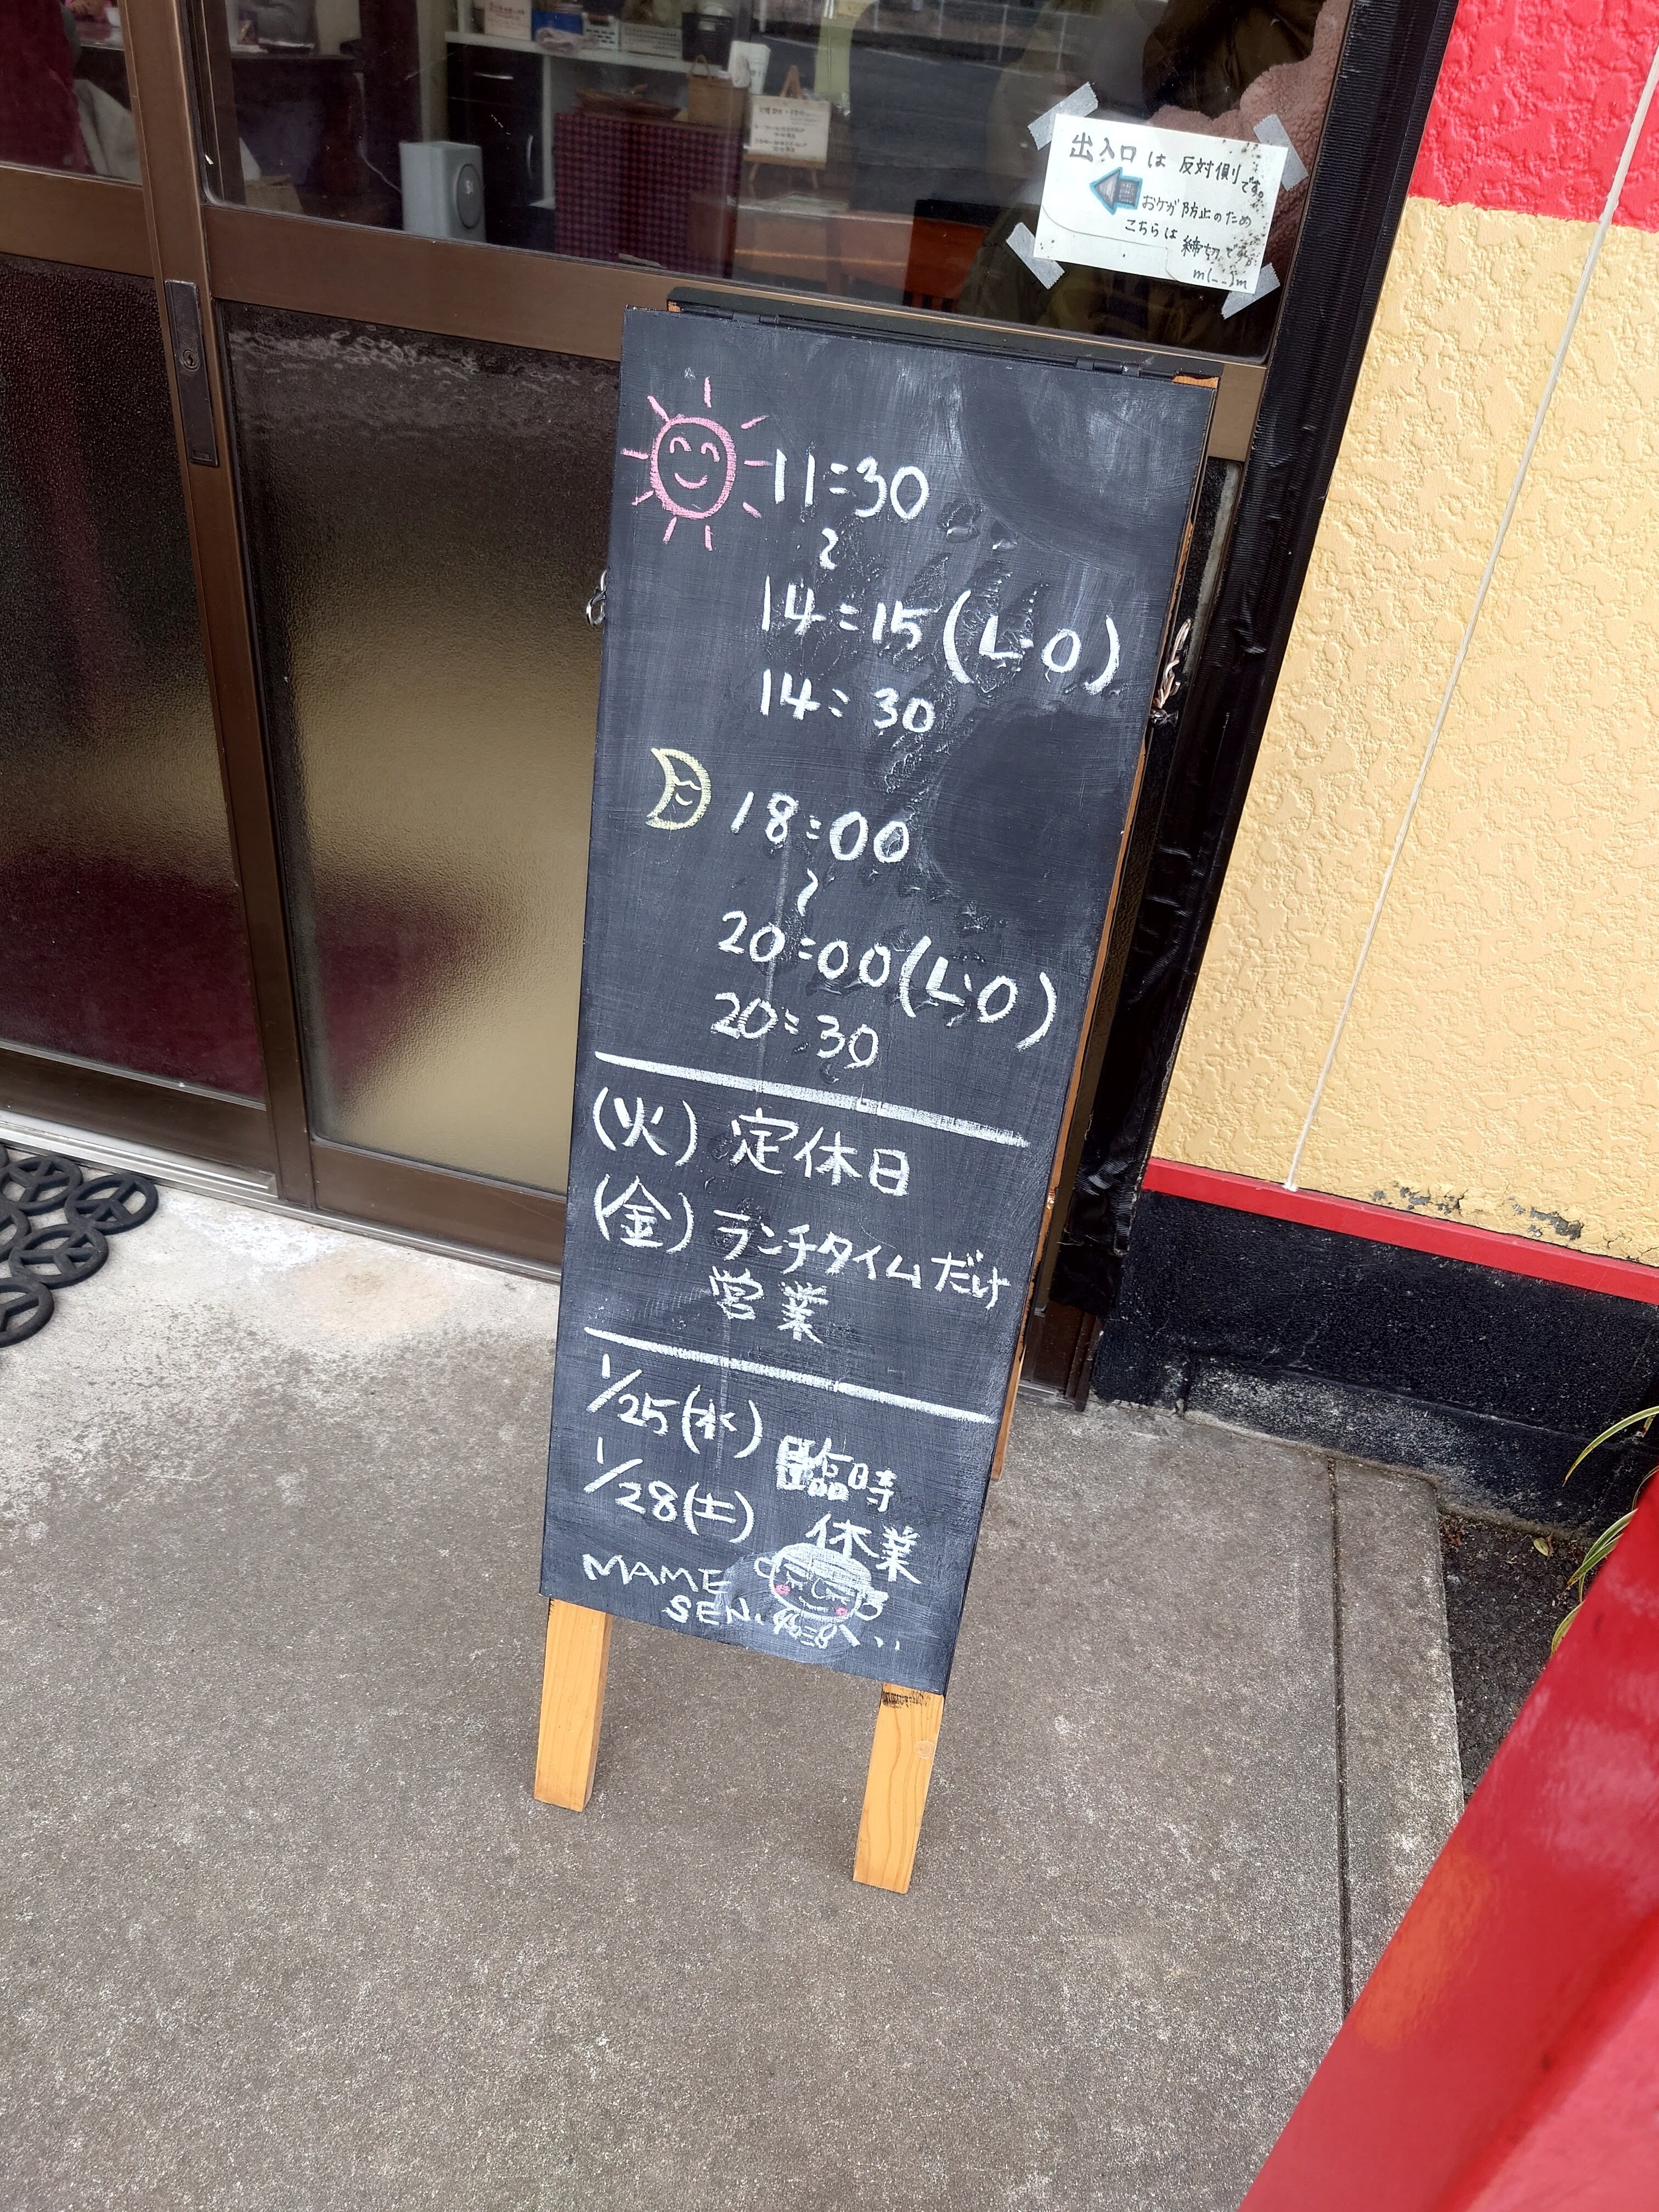 出入口は反対側です。
おケガ防止のため
こちらは締切です。
m(_ _)m
11:30
~
14:15(L・O)
14:30
18:00
~
20:00(L・O)
20:30
(火)定休日
(金)ランチタイムだけ
営業
1/25(水)
臨時
1/28(土)
休業
MAME
SEN.